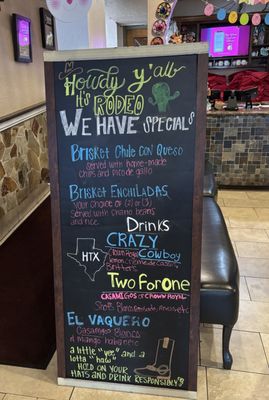 Howdy Y'all
It's RODEO
WE HAVE SPECIALS
Brisket Chile Con Queso
served with home-made
chips and pico de gallo
Brisket Enchiladas
your choice of (2) or (3)
served with charro beans
and rice
Drinks
CRAZY
Cowboy
HTX
Crown Royal
Lemon, creme de cassis
Bitters
Two For One
CASAMIGOS & CROWN ROYAL
Shots
EL VAQUERO
Casamigos Blanco
n mango habanero
a little "yee" and a
lotta "haw"!
HOLD ON YOUR
HATS AND DRINK RESPONSIBLY'S